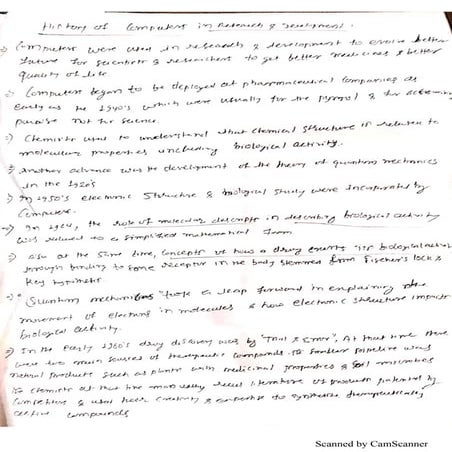 History of Computers in Research & Development.
Computers were used in research & development to evolve better
future for scientists & researchers to get better medicines & better
quality of life
Computers began to be deployed at pharmaceutical companies as
early as the 1940's which were usually for the payroll & for
purpose not for science.
Chemists used to understand that chemical structure is related to
molecular properties including biological activity.
Another advance was the development of the theory of quantum mechanics
in the 1920's
In 1950's electronic structure & biological study were incorporated by
computer.
In 1964, the role of molecular descripts in describing biological activity
was reduced to a simplified mathematical form.
Also at the same time, concepts of how a drug exerts its biological action
through binding to some receptor in the body stemmed from Fischer's lock &
key hypothesis
Quantum mechanics took a leap forward in explaining the
movement of electrons in molecules & how electronic structure impacts
biological activity.
In the early 1960's drug discovery was by "Trial & Error", At that time there
were two main sources of therapeutic compounds pipeline were
natural products such as plants with medicinal properties & soil microbes
Chemists at that time manually read literature of products patented by
competitors & used their creativity & expertise to synthesize therapeutically
active compounds
Scanned by CamScanner